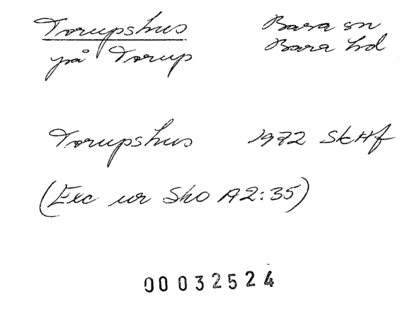 Torupshus Bara sn
på Torup Bara hd
Torupshus 1972 SkHf
(Exc ur SkO A2:35)
00032524